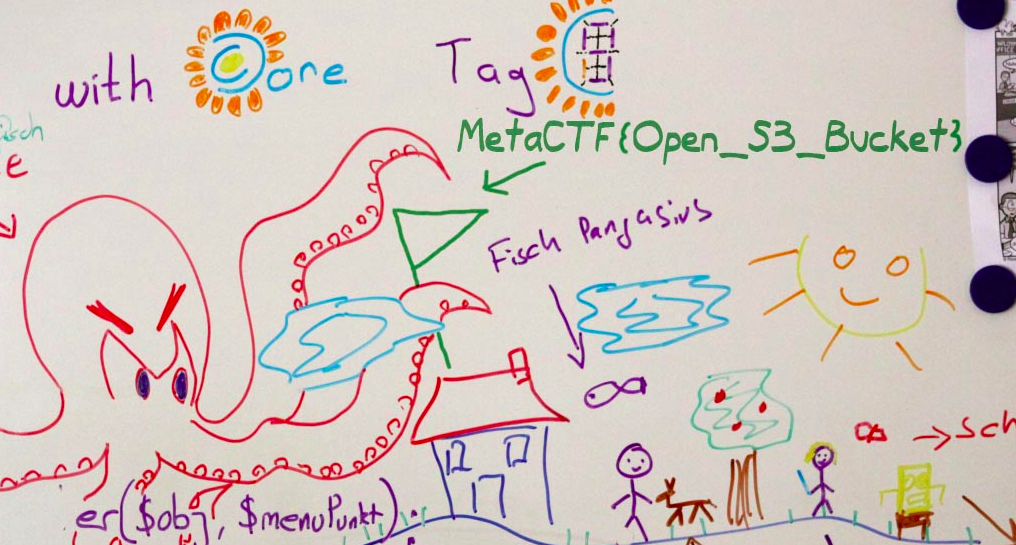 with Cone Tag
MetaCTF{Open_S3_Bucket}
E
Fisch Pangasius
12
17
→ Sch
er($obj, $menuPunkt).